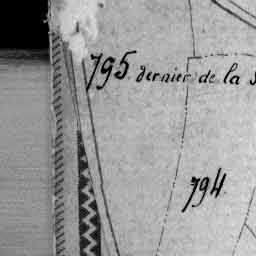 795 dernier de la
794